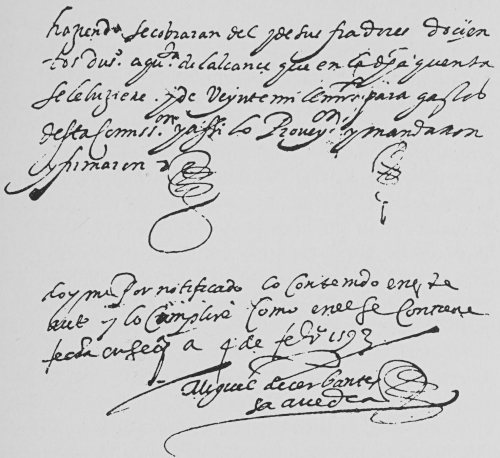 haziendo se cobraran del y de sus fiadores docien
tos dus. a qu.ta del alcance que en la dha quenta
se le hiziere. y de veynte mill mrs para gastos
desta Comiss.on y assi lo Proveye.on y mandaron
y firmaron
doyme Por notificado lo contenido en este
auto y lo Cumplire Como en el se Contiene
fecha en a 4 de febr.o 1593
Miguel de cerbantes
saavedra